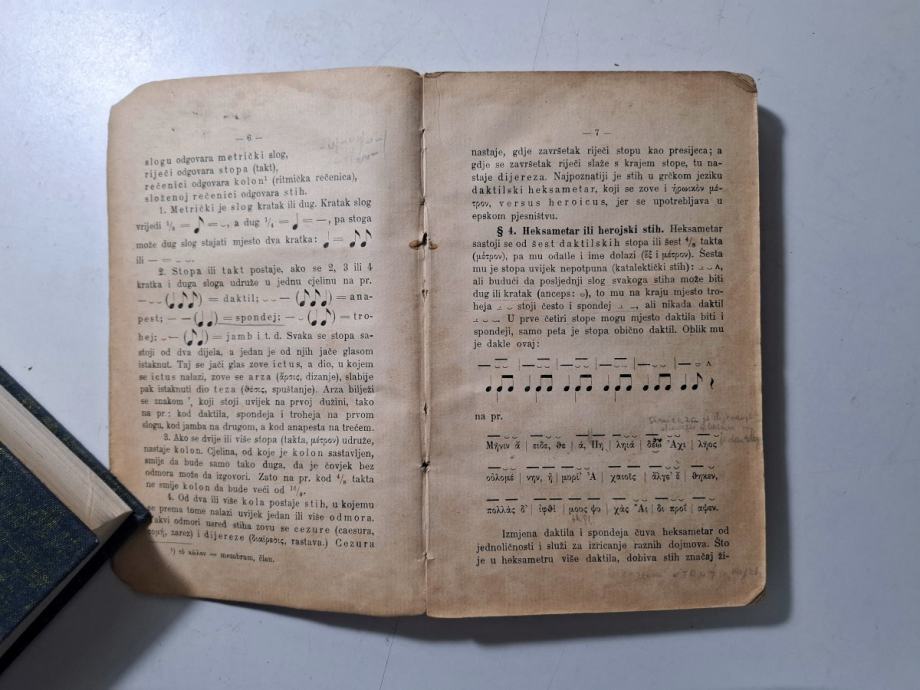 — 6 —
slogu odgovara metrički slog,
riječi odgovara stopa (takt),
rečenici odgovara kolon¹ (ritmička rečenica),
složenoj rečenici odgovara stih.
1. Metrički je slog kratak ili dug. Kratak slog
vrijedi ¹/₈ = ♪ = ⏑, a dug ¹/₄ = ♩ = —, pa stoga
može dug slog stajati mjesto dva kratka: ♩ = ♪♪
ili — = ⏑⏑.
2. Stopa ili takt postaje, ako se 2, 3 ili 4
kratka i duga sloga udruže u jednu cjelinu na pr.
— ⏑⏑ (♩♪♪) = daktil; ⏑⏑ — (♪♪♩) = ana-
pest; — — (♩♩) = spondej; — ⏑ (♩♪) = tro-
hej; ⏑ — (♪♩) = jamb i t. d. Svaka se stopa sa-
stoji od dva dijela, a jedan je od njih jače glasom
istaknut. Taj se jači glas zove ictus, a dio, u kojem
se ictus nalazi, zove se arza (ἄρσις, dizanje), slabije
pak istaknuti dio teza (θέσις, spuštanje). Arza bilježi
se znakom ', koji stoji uvijek na prvoj dužini, tako
na pr.: kod daktila, spondeja i troheja na prvom
slogu, kod jamba na drugom, a kod anapesta na trećem.
3. Ako se dvije ili više stopa (takta, μέτρον) udruže,
nastaje kolon. Cjelina, od koje je kolon sastavljen,
smije da bude samo tako duga, da je čovjek bez
odmora može da izgovori. Zato na pr. kod ⁴/₈ takta
ne smije kolon da bude veći od ¹⁶/₈.
4. Od dva ili više kola postaje stih, u kojemu
se prema tome nalazi uvijek jedan ili više odmora.
Takvi odmori usred stiha zovu se cezure (caesura,
τομή, zarez) i dijereze (διαίρεσις, rastava.) Cezura
¹) τὸ κῶλον = membrum, član.
— 7 —
nastaje, gdje završetak riječi stopu kao presijeca; a
gdje se završetak riječi slaže s krajem stope, tu na-
staje dijereza. Najpoznatiji je stih u grčkom jeziku
daktilski heksametar, koji se zove i ἡρωικὸν μέ-
τρον, versus heroicus, jer se upotrebljava u
epskom pjesništvu.
§ 4. Heksametar ili herojski stih. Heksametar
sastoji se od šest daktilskih stopa ili šest ⁴/₈ takta
(μέτρον), pa mu odatle i ime dolazi (ἓξ i μέτρον). Šesta
mu je stopa uvijek nepotpuna (katalektički stih): — ⏑ ʌ,
ali budući da posljednji slog svakoga stiha može biti
dug ili kratak (anceps: ⏓), to mu na kraju mjesto tro-
heja — ⏑ stoji često i spondej — —, ali nikada daktil
— ⏑ ⏑. U prve četiri stope mogu mjesto daktila biti i
spondeji, samo peta je stopa obično daktil. Oblik mu
je dakle ovaj:
na pr.
Μῆνιν ἄ | ειδε, θε | ά, Πη | ληιά | δεω Ἀχι | λῆος
οὐλομέ | νην, ἣ | μυρί' Ἀ | χαιοῖς | ἄλγε' ἔ | θηκεν,
πολλὰς δ' | ἰφθί | μους ψυ | χὰς Ἄι | δι προΐ | αψεν.
Izmjena daktila i spondeja čuva heksametar od
jednoličnosti i služi za izricanje raznih dojmova. Što
je u heksametru više daktila, dobiva stih značaj ži-